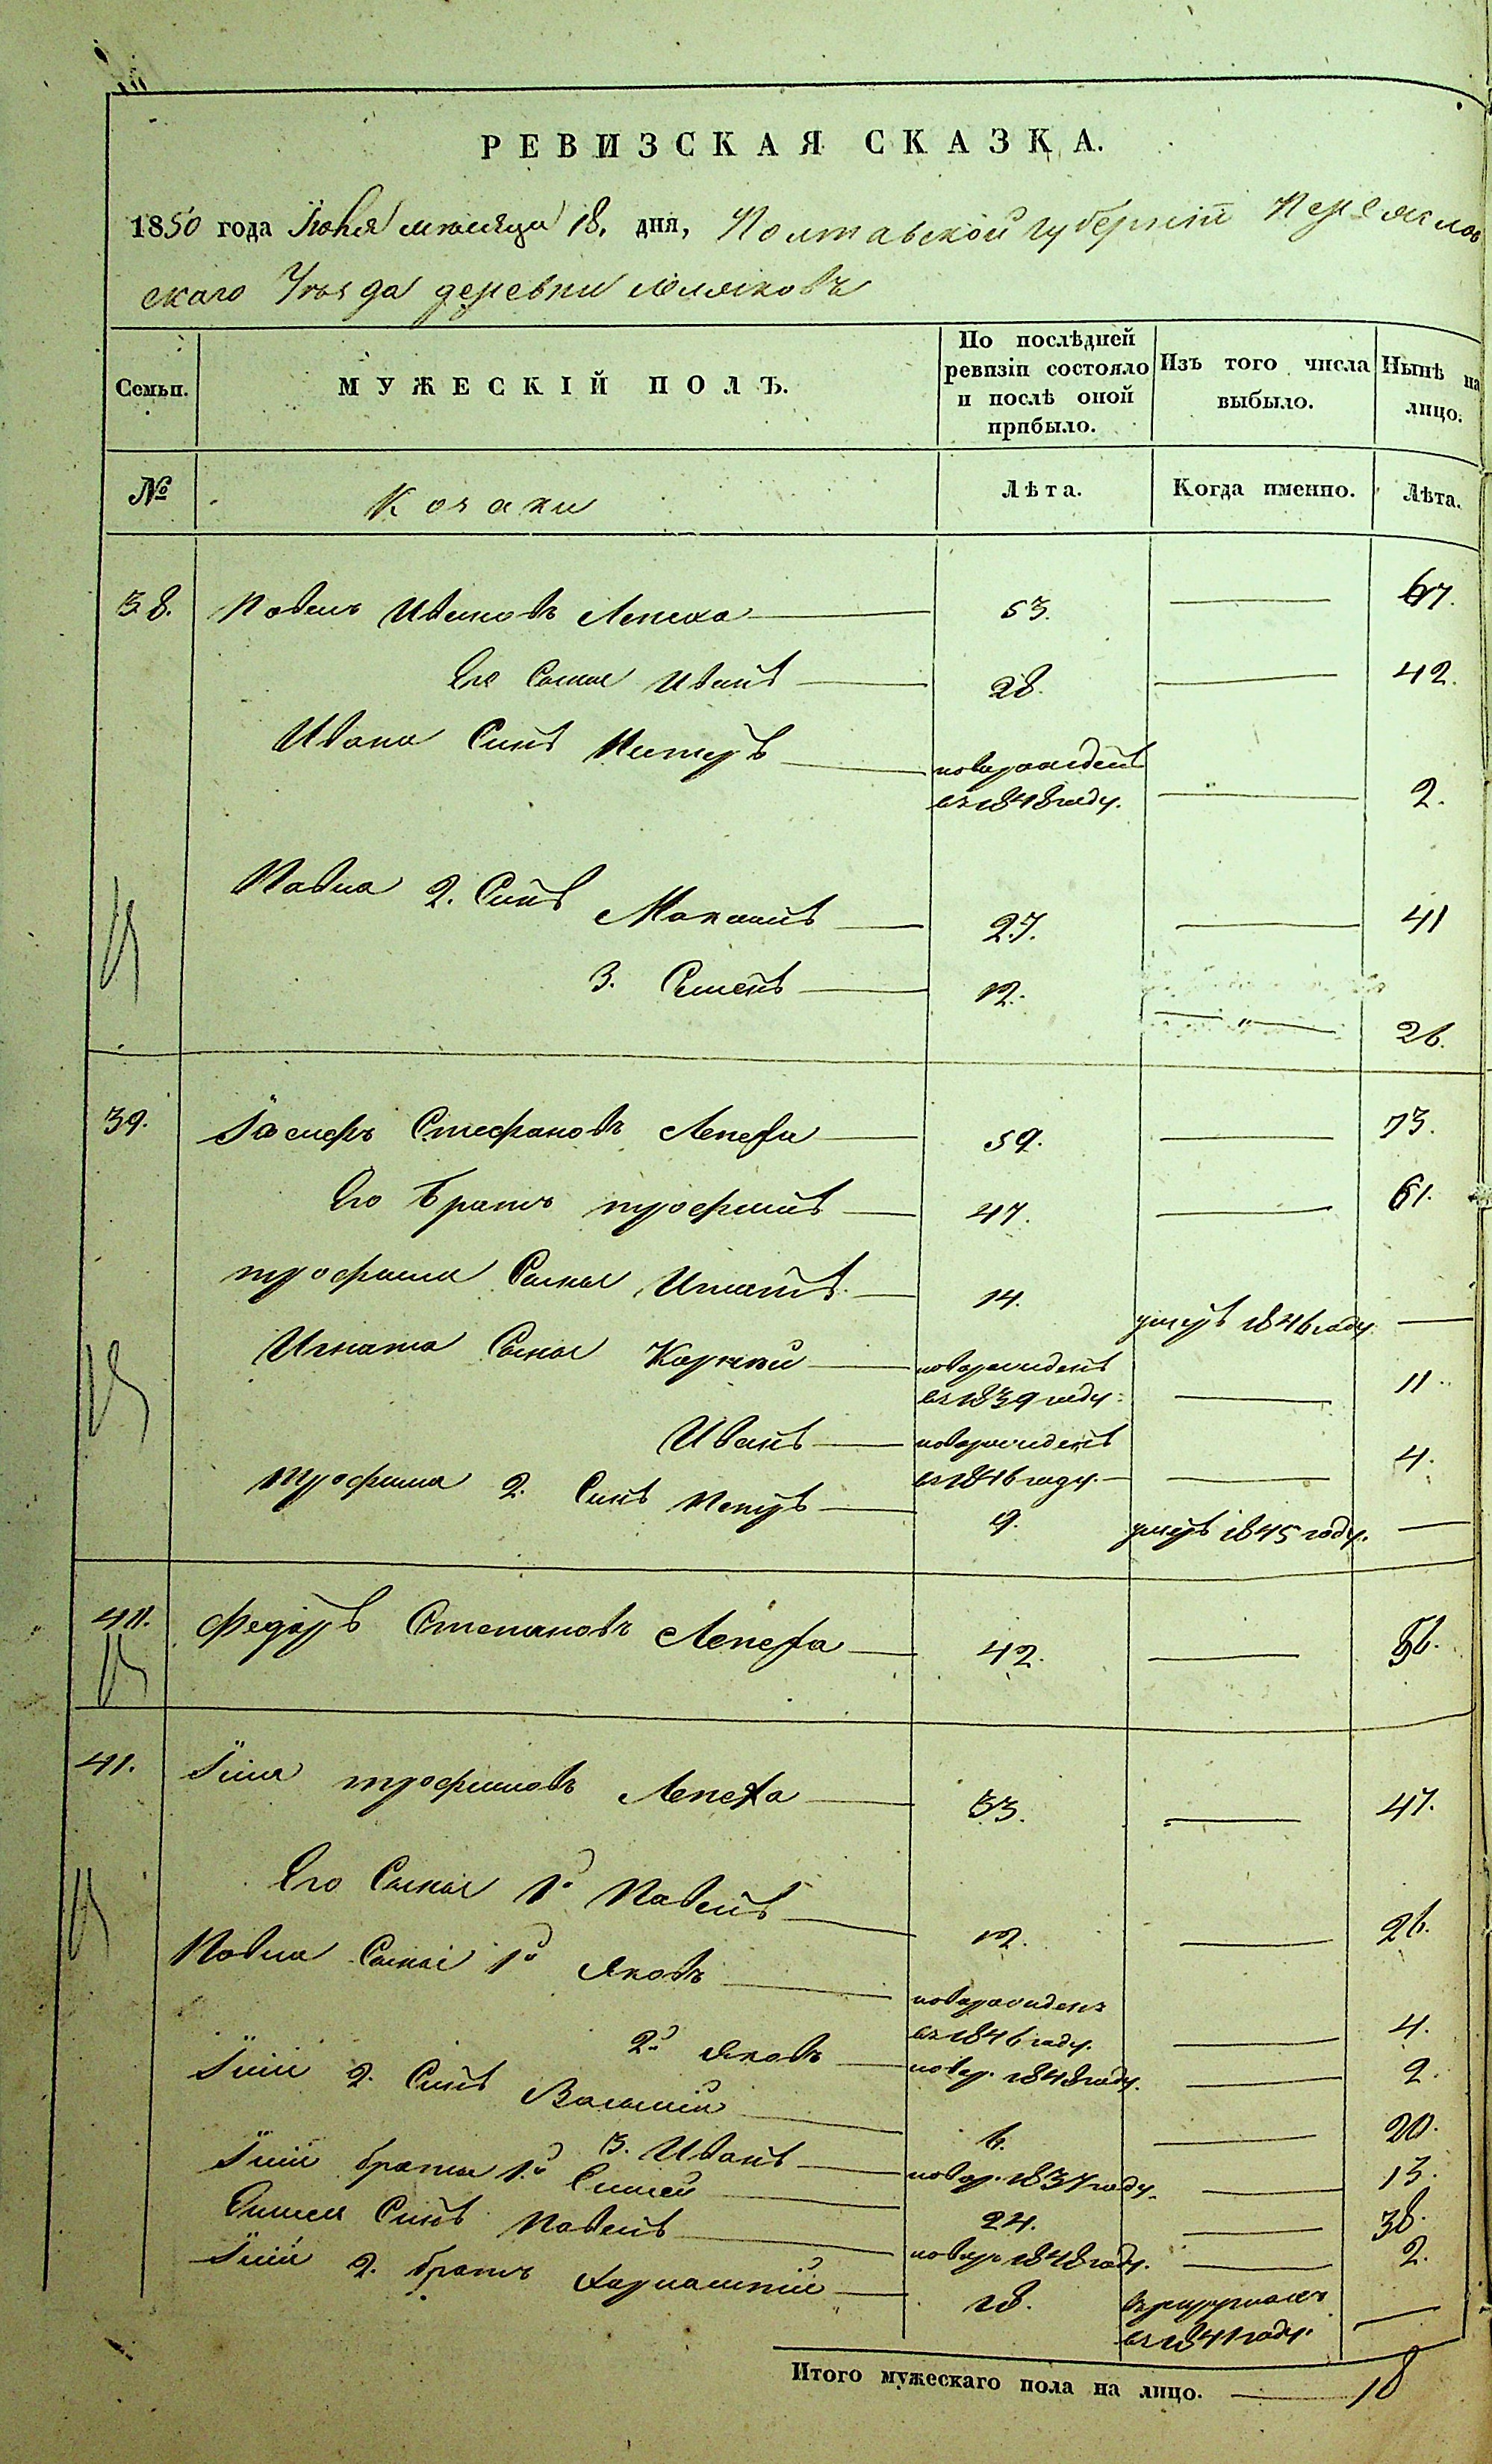 РЕВИЗСКАЯ СКАЗКА.
1850 года Іюня месяца 18. дня, Полтавской губерніи Переяслов
скаго Уѣзда деревни
Семьи. МУЖЕСКІЙ ПОЛЪ. По послѣдней ревизіи состояло и послѣ оной прибыло. Изъ того числа выбыло. Нынѣ на лицо.
№ Козаки Лѣта. Когда именно. Лѣта.
38. Павелъ Ивановъ Лепеха 53. 67.
Его Сынъ Иванъ 28. 42.
Ивана Синъ Петръ новорожденъ
въ 1848 году. 2.
Павла 2. Синъ 27. 41
3. Семенъ 12. 26.
39. Іосифъ Стефановъ Лепеха 59. 73.
Его братъ трофимъ 47. 61.
трофима Сынъ Игнатъ 14. умеръ 1846 году
Игната Сынъ Корнѣй новорожденъ
въ 1839 году. 11.
Иванъ новорожденъ
въ 1846 году. 4.
трофима 2. Синъ Петръ 9. умеръ 1845 году.
40. Федоръ Степановъ Лепеха 42. 56.
41. трофимовъ Лепеха 33. 47.
Его Сынъ 1й Павелъ 12. 26.
Павла Сынъ 1й Яковъ новорожденъ
въ 1846 году. 4.
2й Яковъ новор. 1848 году. 2.
2. Синъ Василій 6. 20.
3. Иванъ новор. 1837 году. 13.
братья 1й 24. 38.
Синъ Павелъ новор. 1848 году. 2.
2. братъ Харлампій 18. въ рекрутахъ
въ 1841 году.
Итого мужескаго пола на лицо. 18